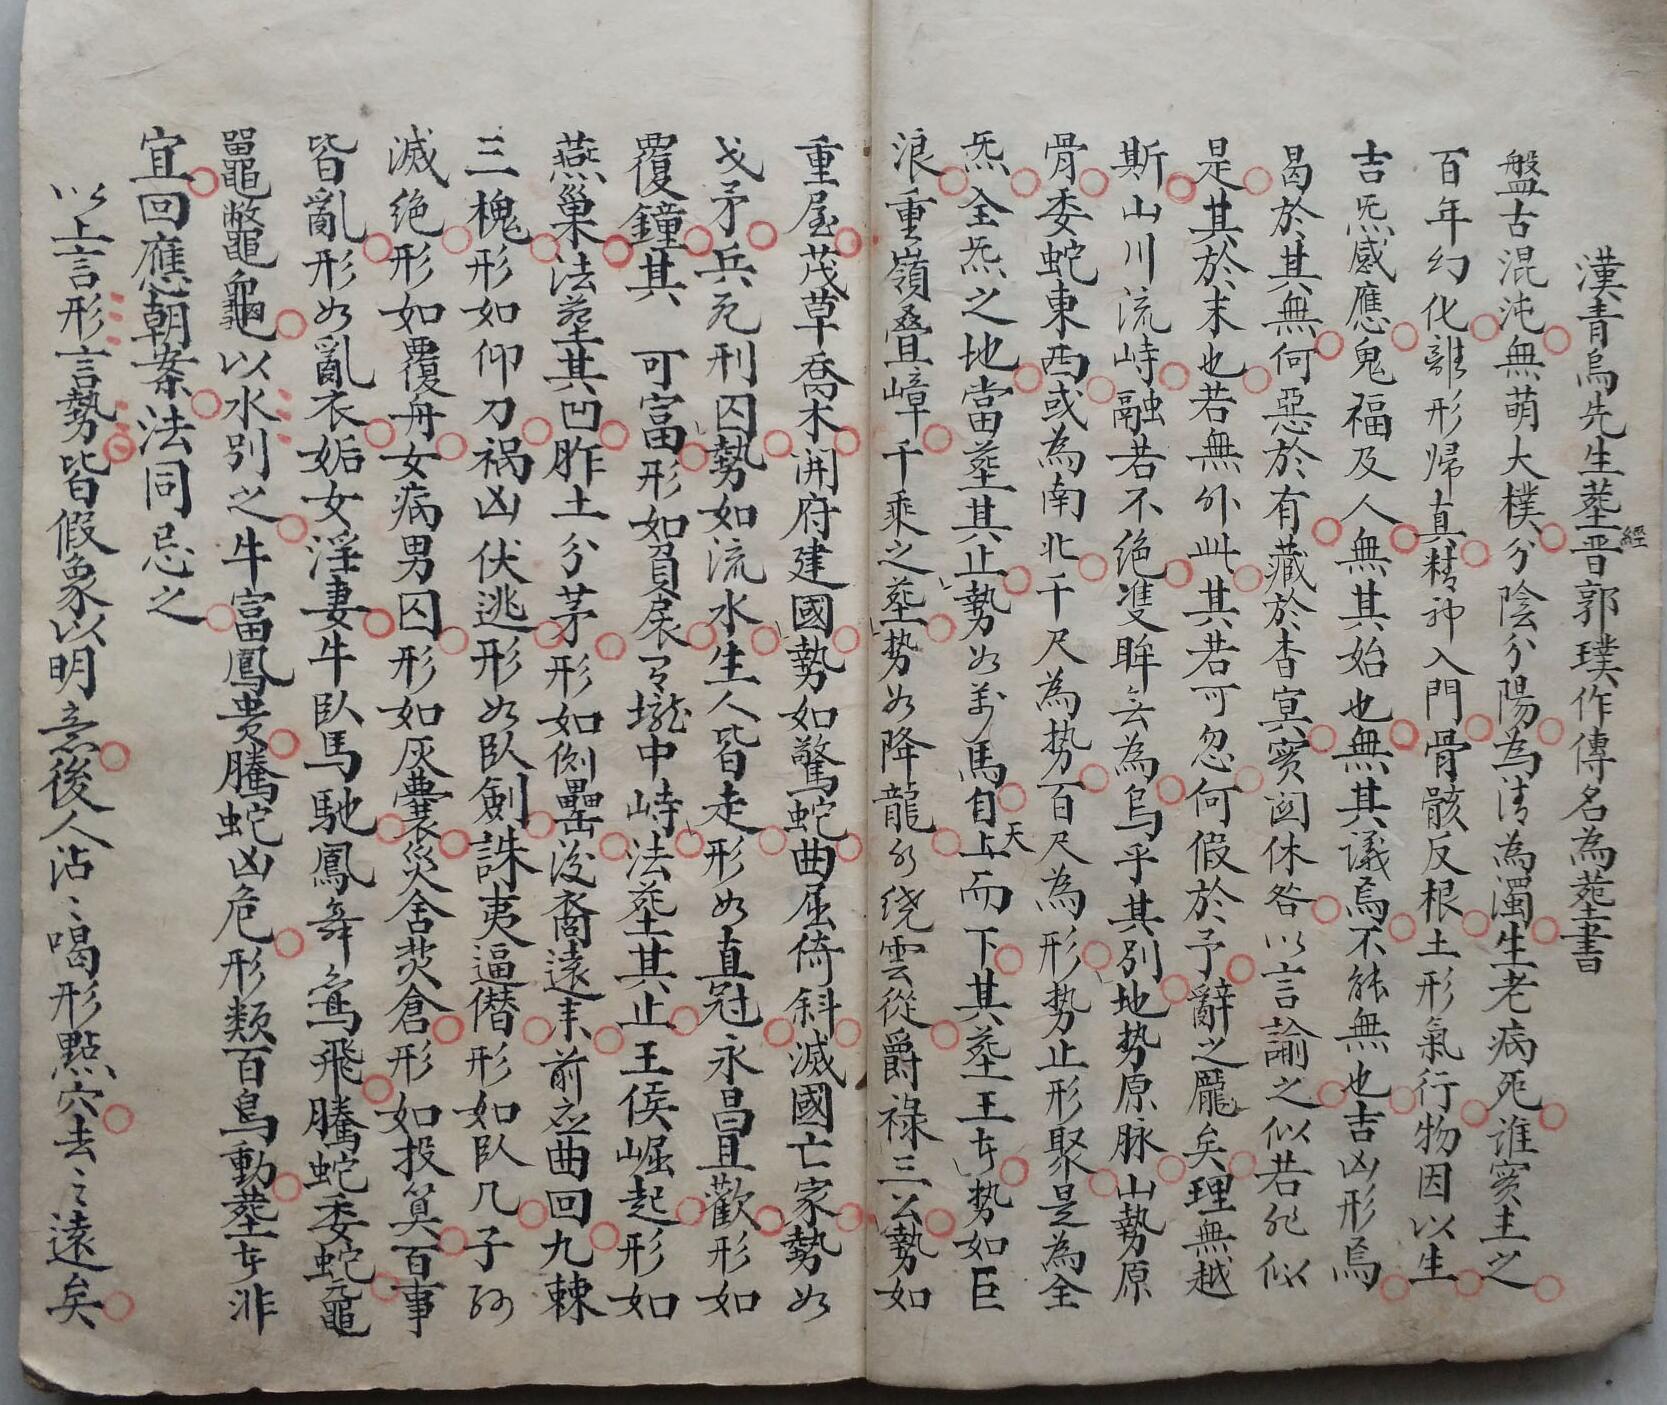 漢青烏先生塟經晋郭璞作傳名為塟書
盤古混沌無萌大樸分陰分陽為清為濁生老病死誰實主之
百年幻化離形歸真精神入門骨骸反根土形氣行物因以生
吉炁感應鬼福及人無其始也無其議焉不能無也吉凶形焉
曷於其無何惡於有藏於杳冥實闗休咎以言諭之似若非似
是其於末也若無外此其若可忽何假於予辭之龎矣理無越
斯山川流峙融若不絶雙眸若無為烏乎其別地势原脉山勢原
骨委蛇東西或為南北千尺為势百尺為形势止形聚是為全
炁全炁之地當塟其止勢如萬馬自天上而下其塟王者势如巨
浪重嶺叠嶂千乘之塟势如降龍水绕雲從爵禄三公勢如
重屋茂草喬木開府建國勢如驚蛇曲屈倚斜滅國亡家勢如
戈矛兵死刑囚勢如流水生人皆走形如直冠永昌且歡形如
覆鐘其 可富形如負扆有壠中峙法塟其止王侯崛起形如
燕巢法塟其凹胙土分茅形如側罍後裔遠来前应曲回九棘
三槐形如仰刀禍凶伏逃形如臥劍誅夷逼僣形如臥几子孙
滅绝形如覆舟女病男囚形如灰囊災舍焚倉形如投筭百事
皆亂形如亂衣妬女淫妻牛臥馬馳鳳舞鸞飛騰蛇委蛇黿
鼉鼈龜以水別之牛富鳳贵騰蛇凶危形類百鳥動塟者非
宜回應朝案法同忌之
以上言形言勢皆假象以明意後人沾〻喝形點穴去之遠矣